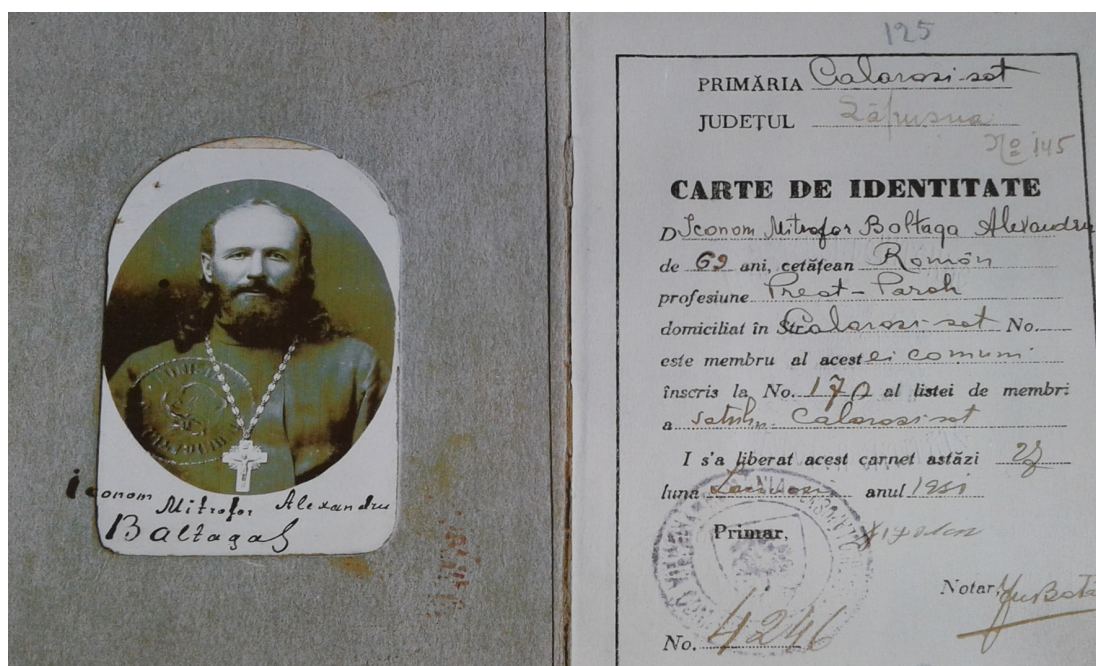 Iconom Mitrofor Alexandru
Baltaga
125
PRIMĂRIA Calarasi-sat
JUDEȚUL Lăpusna
No 145
CARTE DE IDENTITATE
D Iconom Mitrofor Baltaga Alexandru
de 69 ani, cetățean Român
profesiune Preot-Paroh
domiciliat în Str. Calarasi-sat No.
este membru al acestei comuni
înscris la No. 170 al listei de membri
a satului Calarasi-sat
I s'a liberat acest carnet astăzi
luna anul 1931
Primar,
Notar,
No. 4246